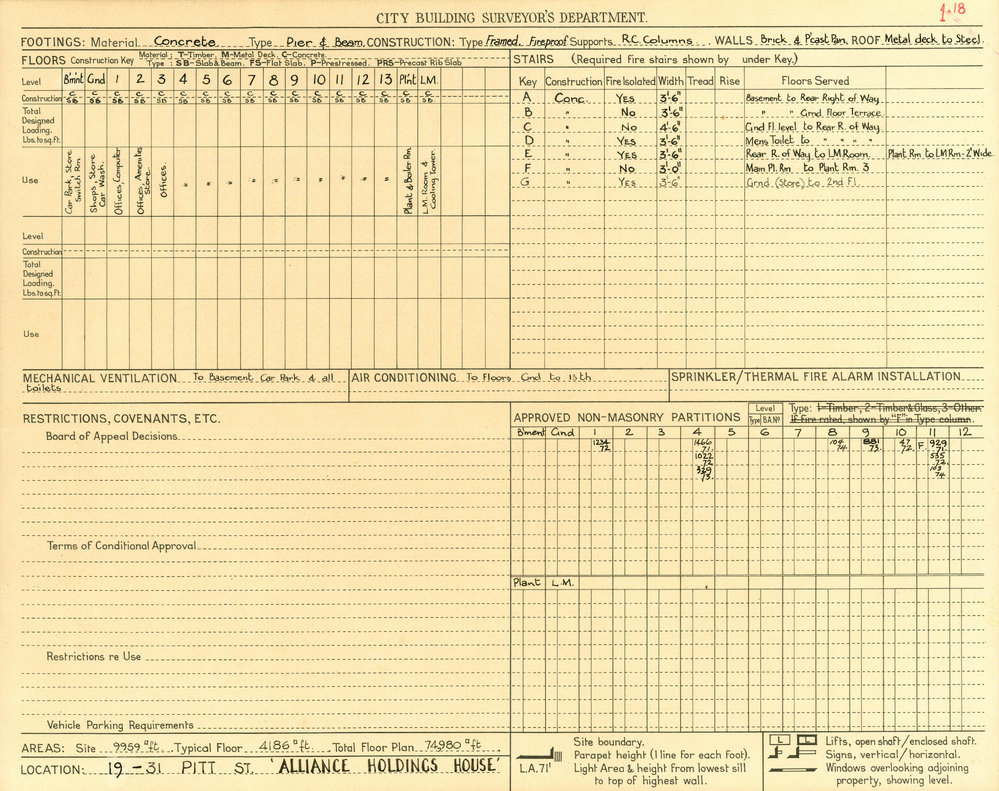 1-18
CITY BUILDING SURVEYOR'S DEPARTMENT.
FOOTINGS: Material Concrete Type Pier & Beam. CONSTRUCTION: Type Framed Fireproof Supports R.C. Columns WALLS Brick & P'cast Pan. ROOF Metal deck to Steel.
FLOORS Construction Key Material: T-Timber. M-Metal Deck. C-Concrete.
Type: SB-Slab & Beam. FS-Flat Slab. P-Prestressed. PRS-Precast Rib Slab
Level B'mnt Gnd 1 2 3 4 5 6 7 8 9 10 11 12 13 Pl'nt L.M.
Construction C SB C SB C SB C SB C SB C SB C SB C SB C SB C SB C SB C SB C SB C SB C SB C SB C SB
Total
Designed
Loading.
Lbs. to sq. ft.
Use
Car Park, Store Switch Rm
Shops, Store Car Wash.
Offices, Computer
Offices, Amenities Store.
Offices.
" " " " " " " " " "
Plant & Boiler Rm.
L.M. Room & Cooling Tower.
Level
Construction
Total
Designed
Loading.
Lbs. to sq. ft.
Use
STAIRS (Required Fire stairs shown by under Key.)
Key Construction Fire Isolated Width Tread Rise Floors Served
A Conc. YES 3'-6" Basement to Rear Right of Way
B " No 3'-6" " " Grnd Floor Terrace.
C " No 4'-6" Gnd Fl. level to Rear R. of Way
D " YES 3'-6" Mens Toilet to " " " "
E " YES 3'-6" Rear R. of Way to L.M Room. Plant Rm to L.M Rm - 2' Wide.
F " No 3'-0" Main Pl. Rm to Plant Rm. 3
G " YES 3'-6" Grnd (Store) to 2nd Fl.
MECHANICAL VENTILATION To Basement Car Park & all
toilets
AIR CONDITIONING To Floors Gnd to 13th
SPRINKLER/THERMAL FIRE ALARM INSTALLATION
RESTRICTIONS, COVENANTS, ETC.
Board of Appeal Decisions.
Terms of Conditional Approval
Restrictions re Use
Vehicle Parking Requirements
APPROVED NON-MASONRY PARTITIONS Level Type B.A.Nº Type: 1-Timber, 2-Timber & Glass, 3-Other
If Fire rated, shown by "F" in Type column.
B'ment Gnd 1 2 3 4 5 6 7 8 9 10 11 12
1234 72 1466 71 104 74 881 73 47 72 F 929 71
1022 72 535 72
329 73 103 74
Plant L.M.
AREAS: Site 9959 □ft Typical Floor 4186 □ft Total Floor Plan 74980 □ft
LOCATION: 19-31 PITT ST. 'ALLIANCE HOLDINGS HOUSE'
Site boundary.
Parapet height (1 line for each foot).
L.A. 71' Light Area & height from lowest sill
to top of highest wall.
L L Lifts, open shaft/enclosed shaft.
Signs, vertical/horizontal.
Windows overlooking adjoining
property, showing level.